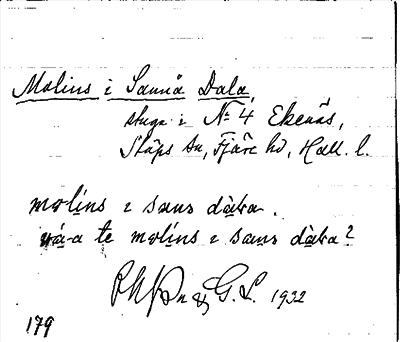 Molins i Sannå Dala,
stuga i № 4 Ekenäs,
Släps sn, Fjäre hd, Hall. l.
molíns ɿ sans dàɩa.
vá-a te molíns ɿ sans dàɩa?
G. L. 1932
179